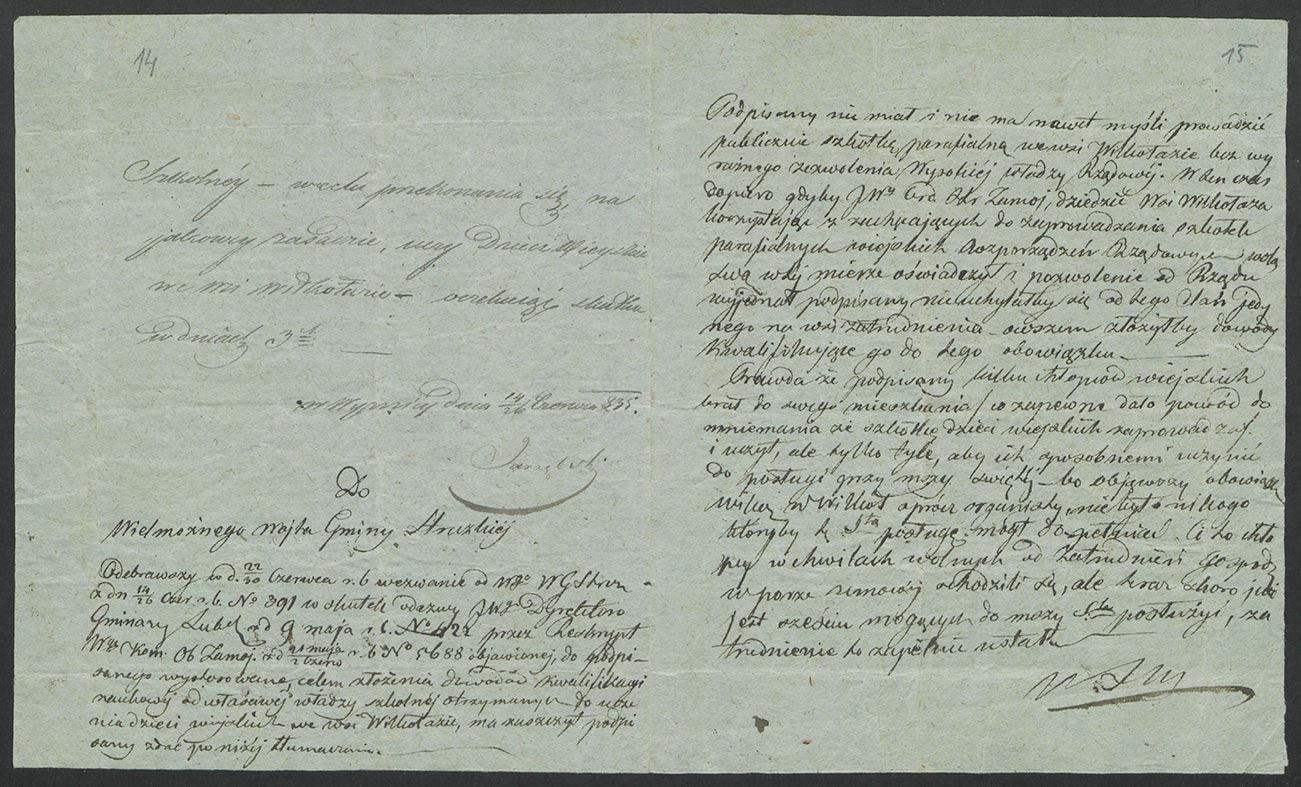 14
Szkolnéy – w celu przekonania się, na
jakowey zasadzie, uczy Dzieci Wieyskie
we wsi Wilkołazie – oczekuiąc skutku
w dniach 3ch
w Wyznicy dnia 14/26 Czerwca 835.
Do
Wielmożnego Wojta Gminy Struzkiéj
Odebrawszy w d. 22/30 Czerwca r. b wezwanie od WGo WG
z dn 14/26 Czer r. b. No 391 w skutek odezwy JWo Dyrektora
Gminazy Lubel od 9 maja r. b. No 422 przez Reskrypt
Kom. Ob Zamoj. z d r. b No 5688 objawionej, do podpi-
sanego wystosowane, celem złożenia dowodów kwalifikacyi
naukowéj od właściwéj władzy szkolnéj otrzymanych do ucze
nia dzieci wiejskich we wsi Wilkołazie, ma zaszczyt podpi
sany zdać poniżéj tłumaczenie.
15
Podpisany nie miał i nie ma nawet myśli prowadzić
publicznie szkołkę parafialną we wsi Wilkołazie bez wy
raźnego zezwolenia Wysokiéj władzy Rządowéj. W ten czas
dopiero gdyby JWy Ord Zamoj, dziedzic Wsi Wilkołaza
korzystając z zachęcających do zaprowadzania szkołek
parafialnych wiejskich Rozporządzeń Rządowych wolą
swą w téj mierze oświadczył i pozwolenie od Rządu
wyjednał podpisany nie uchylałby się od tego dlań jedy
nego na wsi zatrudnienia – owszem złożyłby dowody
kwalifikujące go do tego obowiązku. –
Prawda że podpisany kilku chłopców wiejskich
brał do swego mieszkania / co zapewne dało powód do
mniemania że szkołkę dzieci wiejskich zaprowadzał
i uczył, ale tylko tyle, aby ich sposobnemi uczynić
do posługi przy mszy świętéj – bo objąwszy obowiązki
w Wilkoł oprócz organisty, nie było nikogo
któryby tę Stą posługę mógł dopełniać. Ci to chło
pcy w chwilach wolnych od zatrudnień gospod
w porze zimowéj schodzili się, ale teraz skoro już
jest sześciu mogących do mszy Stéj posłużyć, za
trudnienie to zupełnie ustało